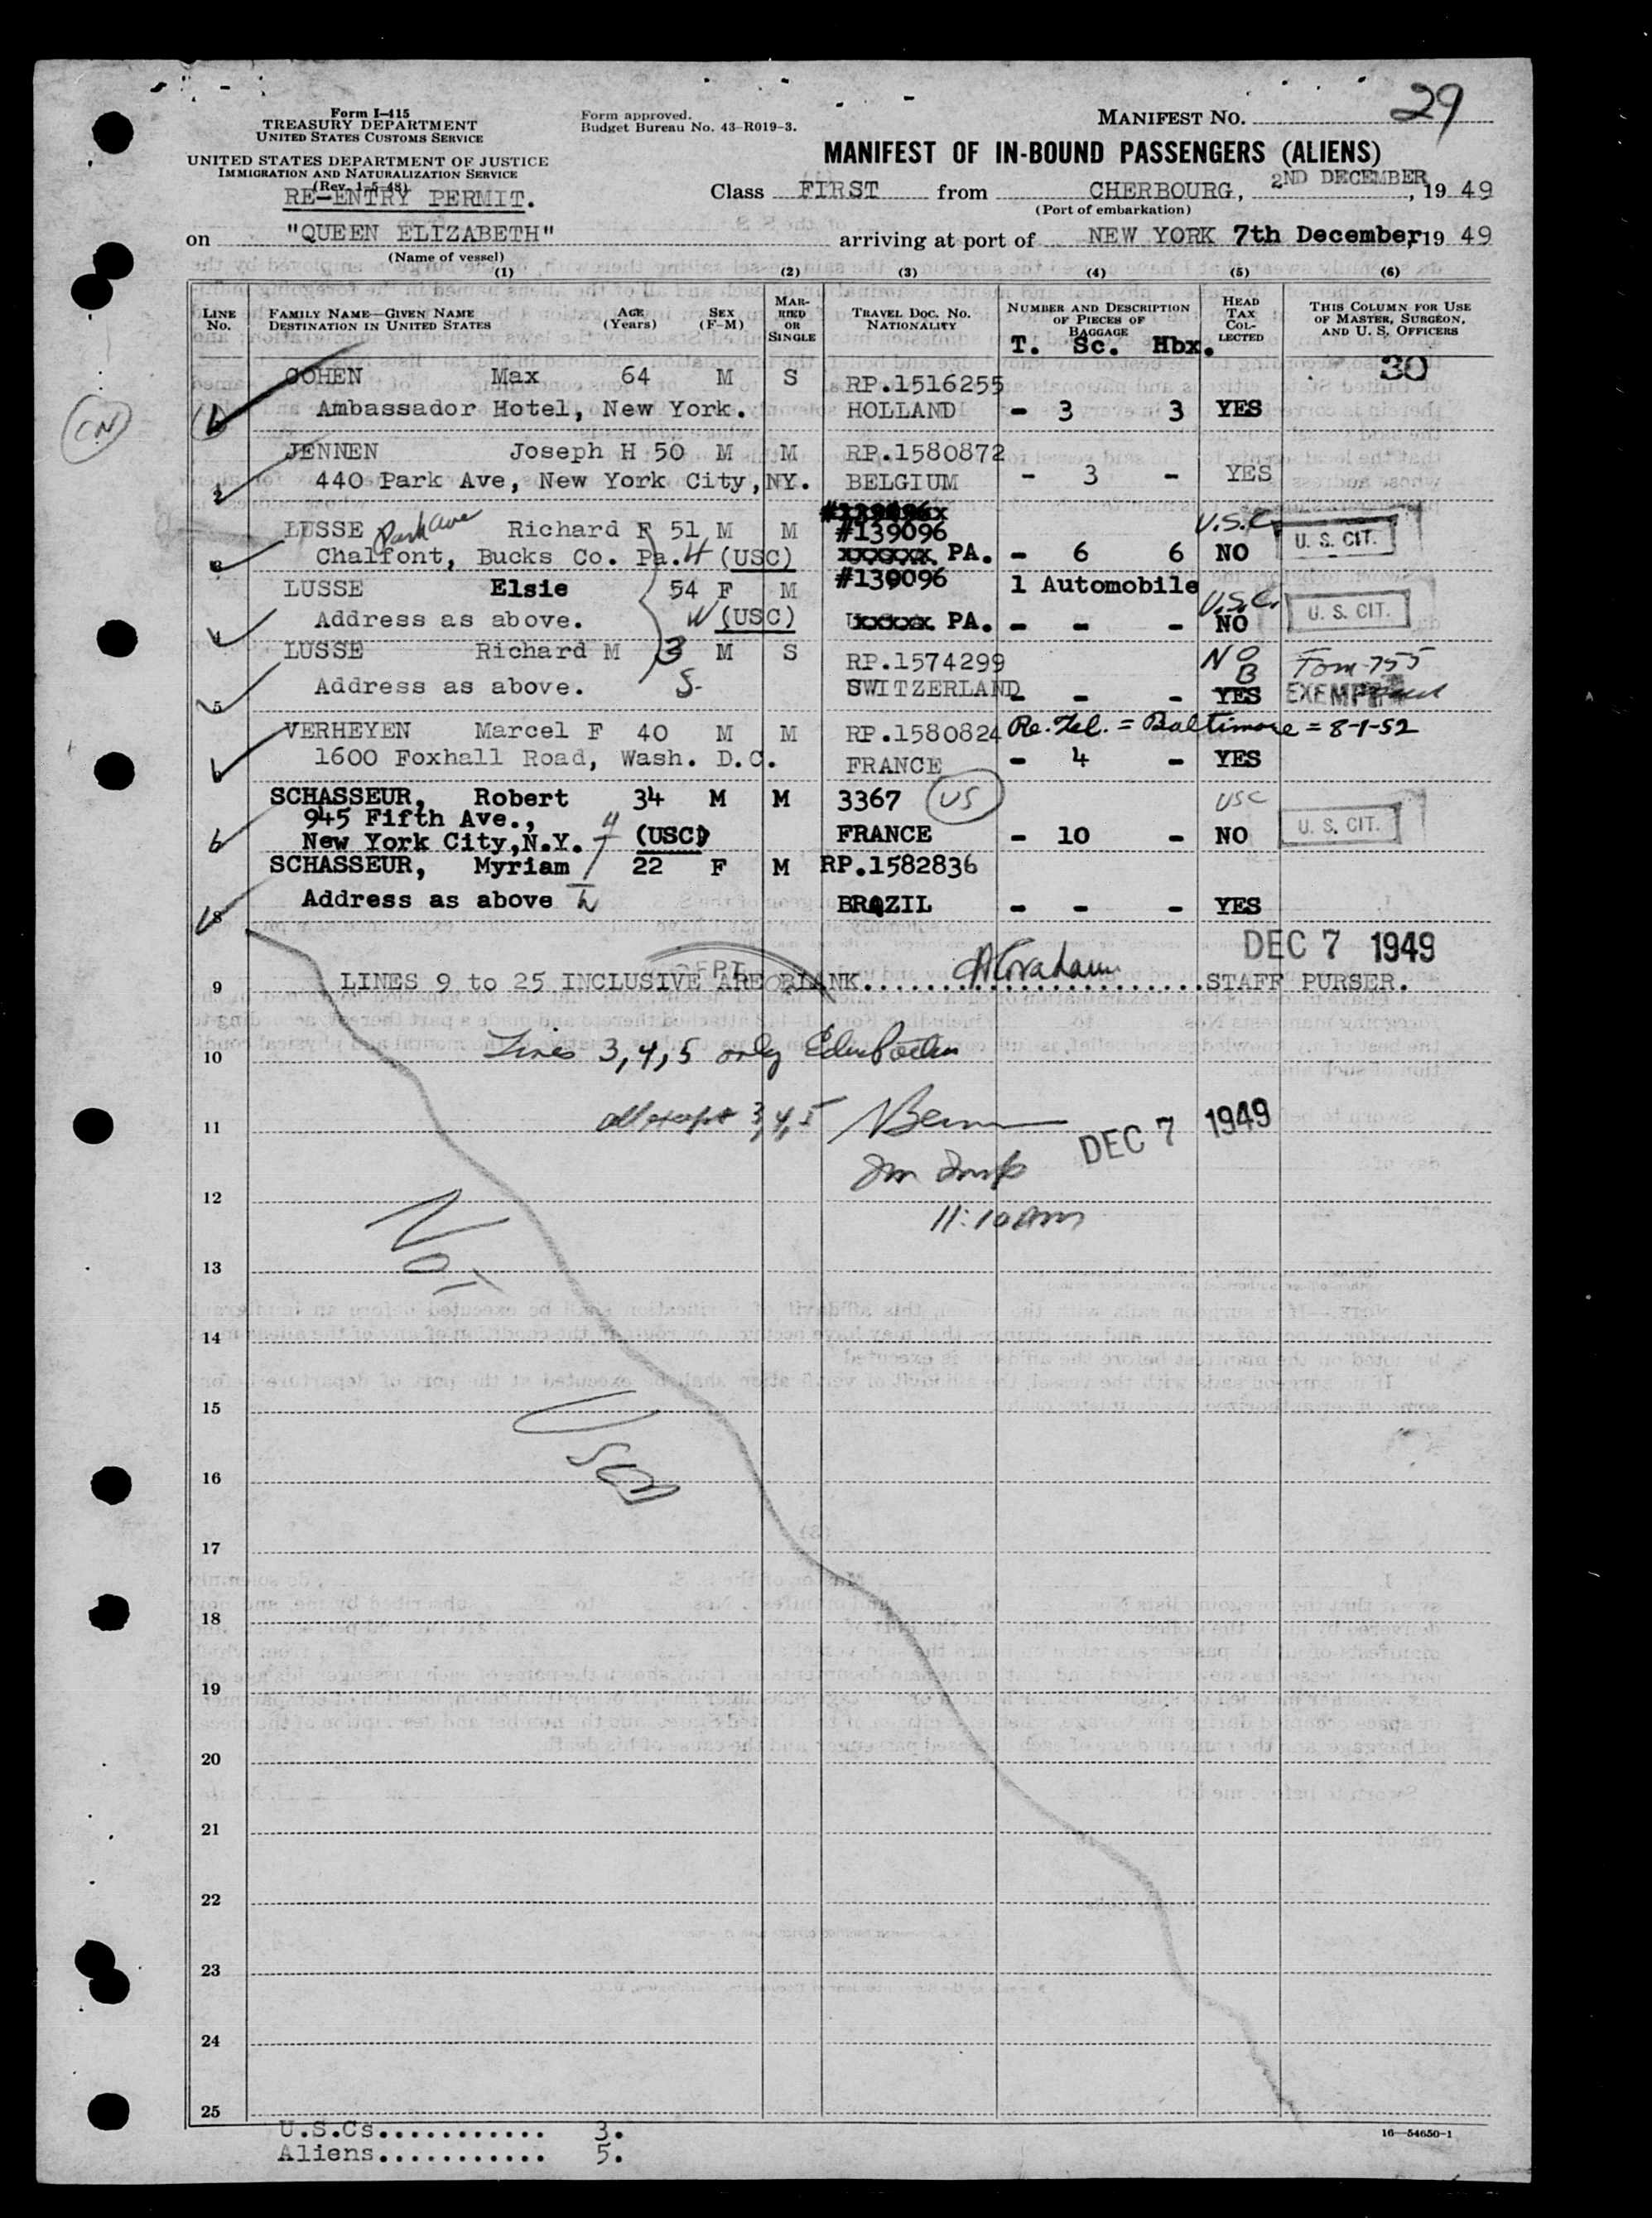 Form I-415
TREASURY DEPARTMENT
UNITED STATES CUSTOMS SERVICE
UNITED STATES DEPARTMENT OF JUSTICE
IMMIGRATION AND NATURALIZATION SERVICE
(Rev. 1-5-48)
RE-ENTRY PERMIT.
Form approved.
Budget Bureau No. 43-R019-3.
MANIFEST NO. 29
MANIFEST OF IN-BOUND PASSENGERS (ALIENS)
Class FIRST from CHERBOURG, 2ND DECEMBER, 19 49
(Port of embarkation)
on "QUEEN ELIZABETH" arriving at port of NEW YORK 7th December, 19 49
(Name of vessel)
(1) (2) (3) (4) (5) (6)
LINE No.
FAMILY NAME—GIVEN NAME
DESTINATION IN UNITED STATES
AGE (Years)
SEX (F-M)
MARRIED OR SINGLE
TRAVEL DOC. NO. NATIONALITY
NUMBER AND DESCRIPTION OF PIECES OF BAGGAGE
T. Sc. Hbx.
HEAD TAX COLLECTED
THIS COLUMN FOR USE OF MASTER, SURGEON, AND U. S. OFFICERS
30
COHEN Max 64 M S RP.1516255
Ambassador Hotel, New York. HOLLAND - 3 3 YES
CN
JENNEN Joseph H 50 M M RP.1580872
440 Park Ave, New York City, NY. BELGIUM - 3 - YES
LUSSE Park Ave Richard F 51 M M #139096 U.S.C. U. S. CIT.
Chalfont, Bucks Co. Pa. H (USC) PA. - 6 6 NO
LUSSE Elsie 54 F M #139096 1 Automobile U.S.C. U. S. CIT.
Address as above. W (USC) PA. - - - NO
LUSSE Richard M 3 M S RP.1574299 NO B
Address as above. S- SWITZERLAND - - - YES EXEMPT
VERHEYEN Marcel F 40 M M RP.1580824 Re. Tel. = Baltimore = 8-1-52
1600 Foxhall Road, Wash. D.C. FRANCE - 4 - YES
SCHASSEUR, Robert 34 M M 3367 US USC U. S. CIT.
945 Fifth Ave.,
New York City, N.Y. H (USC) FRANCE - 10 - NO
SCHASSEUR, Myriam 22 F M RP.1582836
8 Address as above BRAZIL - - - YES
DEC 7 1949
9 LINES 9 to 25 INCLUSIVE ARE BLANK. STAFF PURSER.
10 Lines 3,4,5 only
11 all except 3,4,5 DEC 7 1949
12 11:10 AM
13 Not
14
15 Used
16
17
18
19
20
21
22
23
24
25
U.S.Cs........... 3.
Aliens........... 5.
16—54650-1